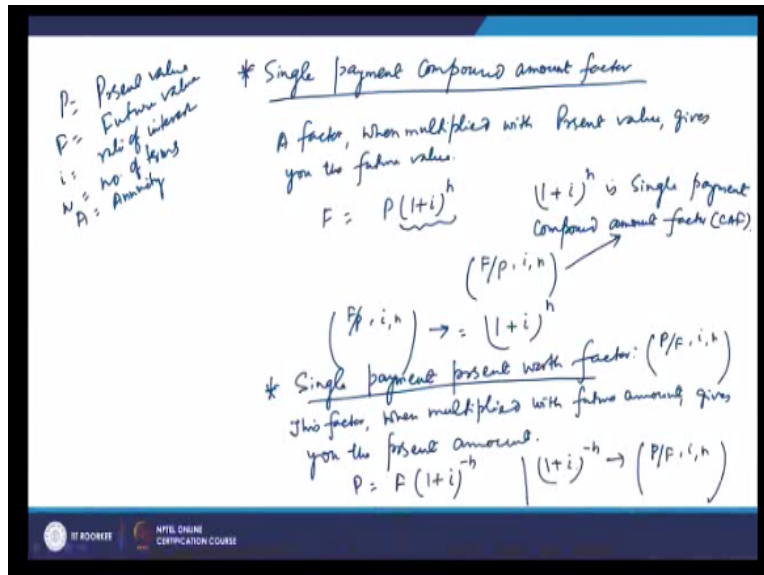 P = Present value
F = Future value
i = rate of interest
N = no. of terms
A = Annuity
* Single payment compound amount factor
A factor, when multiplied with Present value, gives
you the future value.
F = P(1+i)^n
(1+i)^n is Single payment
compound amount factor (CAF).
(F/P, i, n)
(F/P, i, n) → = (1+i)^n
* Single payment present worth factor: (P/F, i, n)
This factor, when multiplied with future amount, gives
you the present amount.
P = F(1+i)^-n | (1+i)^-n → (P/F, i, n)
IIT ROORKEE
NPTEL ONLINE
CERTIFICATION COURSE